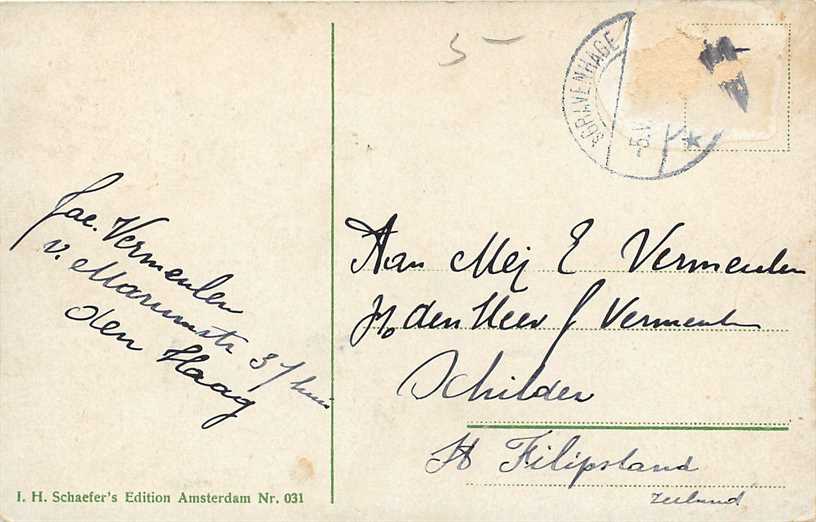 5-
'SGRAVENHAGE
-5.
Jac. Vermeulen
v. Marumstr 37 huis
den Haag
Aan Mej E Vermeulen
p/o den Heer J Vermeulen
Schilder
St Filipsland
Zeeland
I. H. Schaefer's Edition Amsterdam Nr. 031